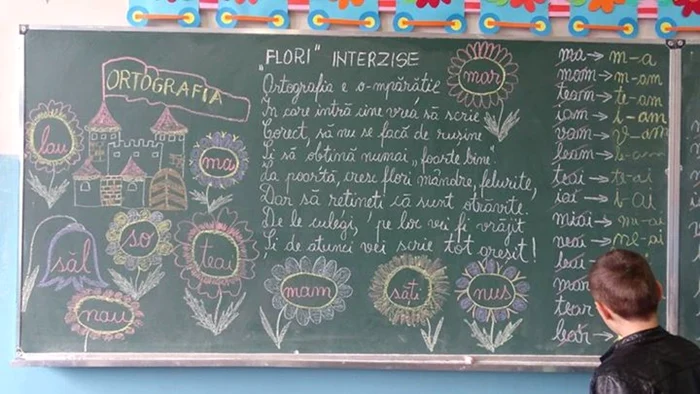 ORTOGRAFIA
„FLORI" INTERZISE
Ortografia e o-mpărăție
În care intră cine vrea să scrie
Corect, să nu se facă de rușine
Și să obțină numai „foarte bine".
La poartă, cresc flori mândre, felurite,
Dar să rețineți că sunt otrăvite.
De le culegi, pe loc vei fi vrăjit
Și de atunci vei scrie tot greșit!
lau
ma
mar
săl
so
teai
nau
mam
săti
nus
ma → m-a
mam → m-am
team → te-am
iam → i-am
vam → v-am
leam → l-am
teai → te-ai
iai → i-ai
miai → mi-ai
neai → ne-ai
leai →
mar
tear
lear →